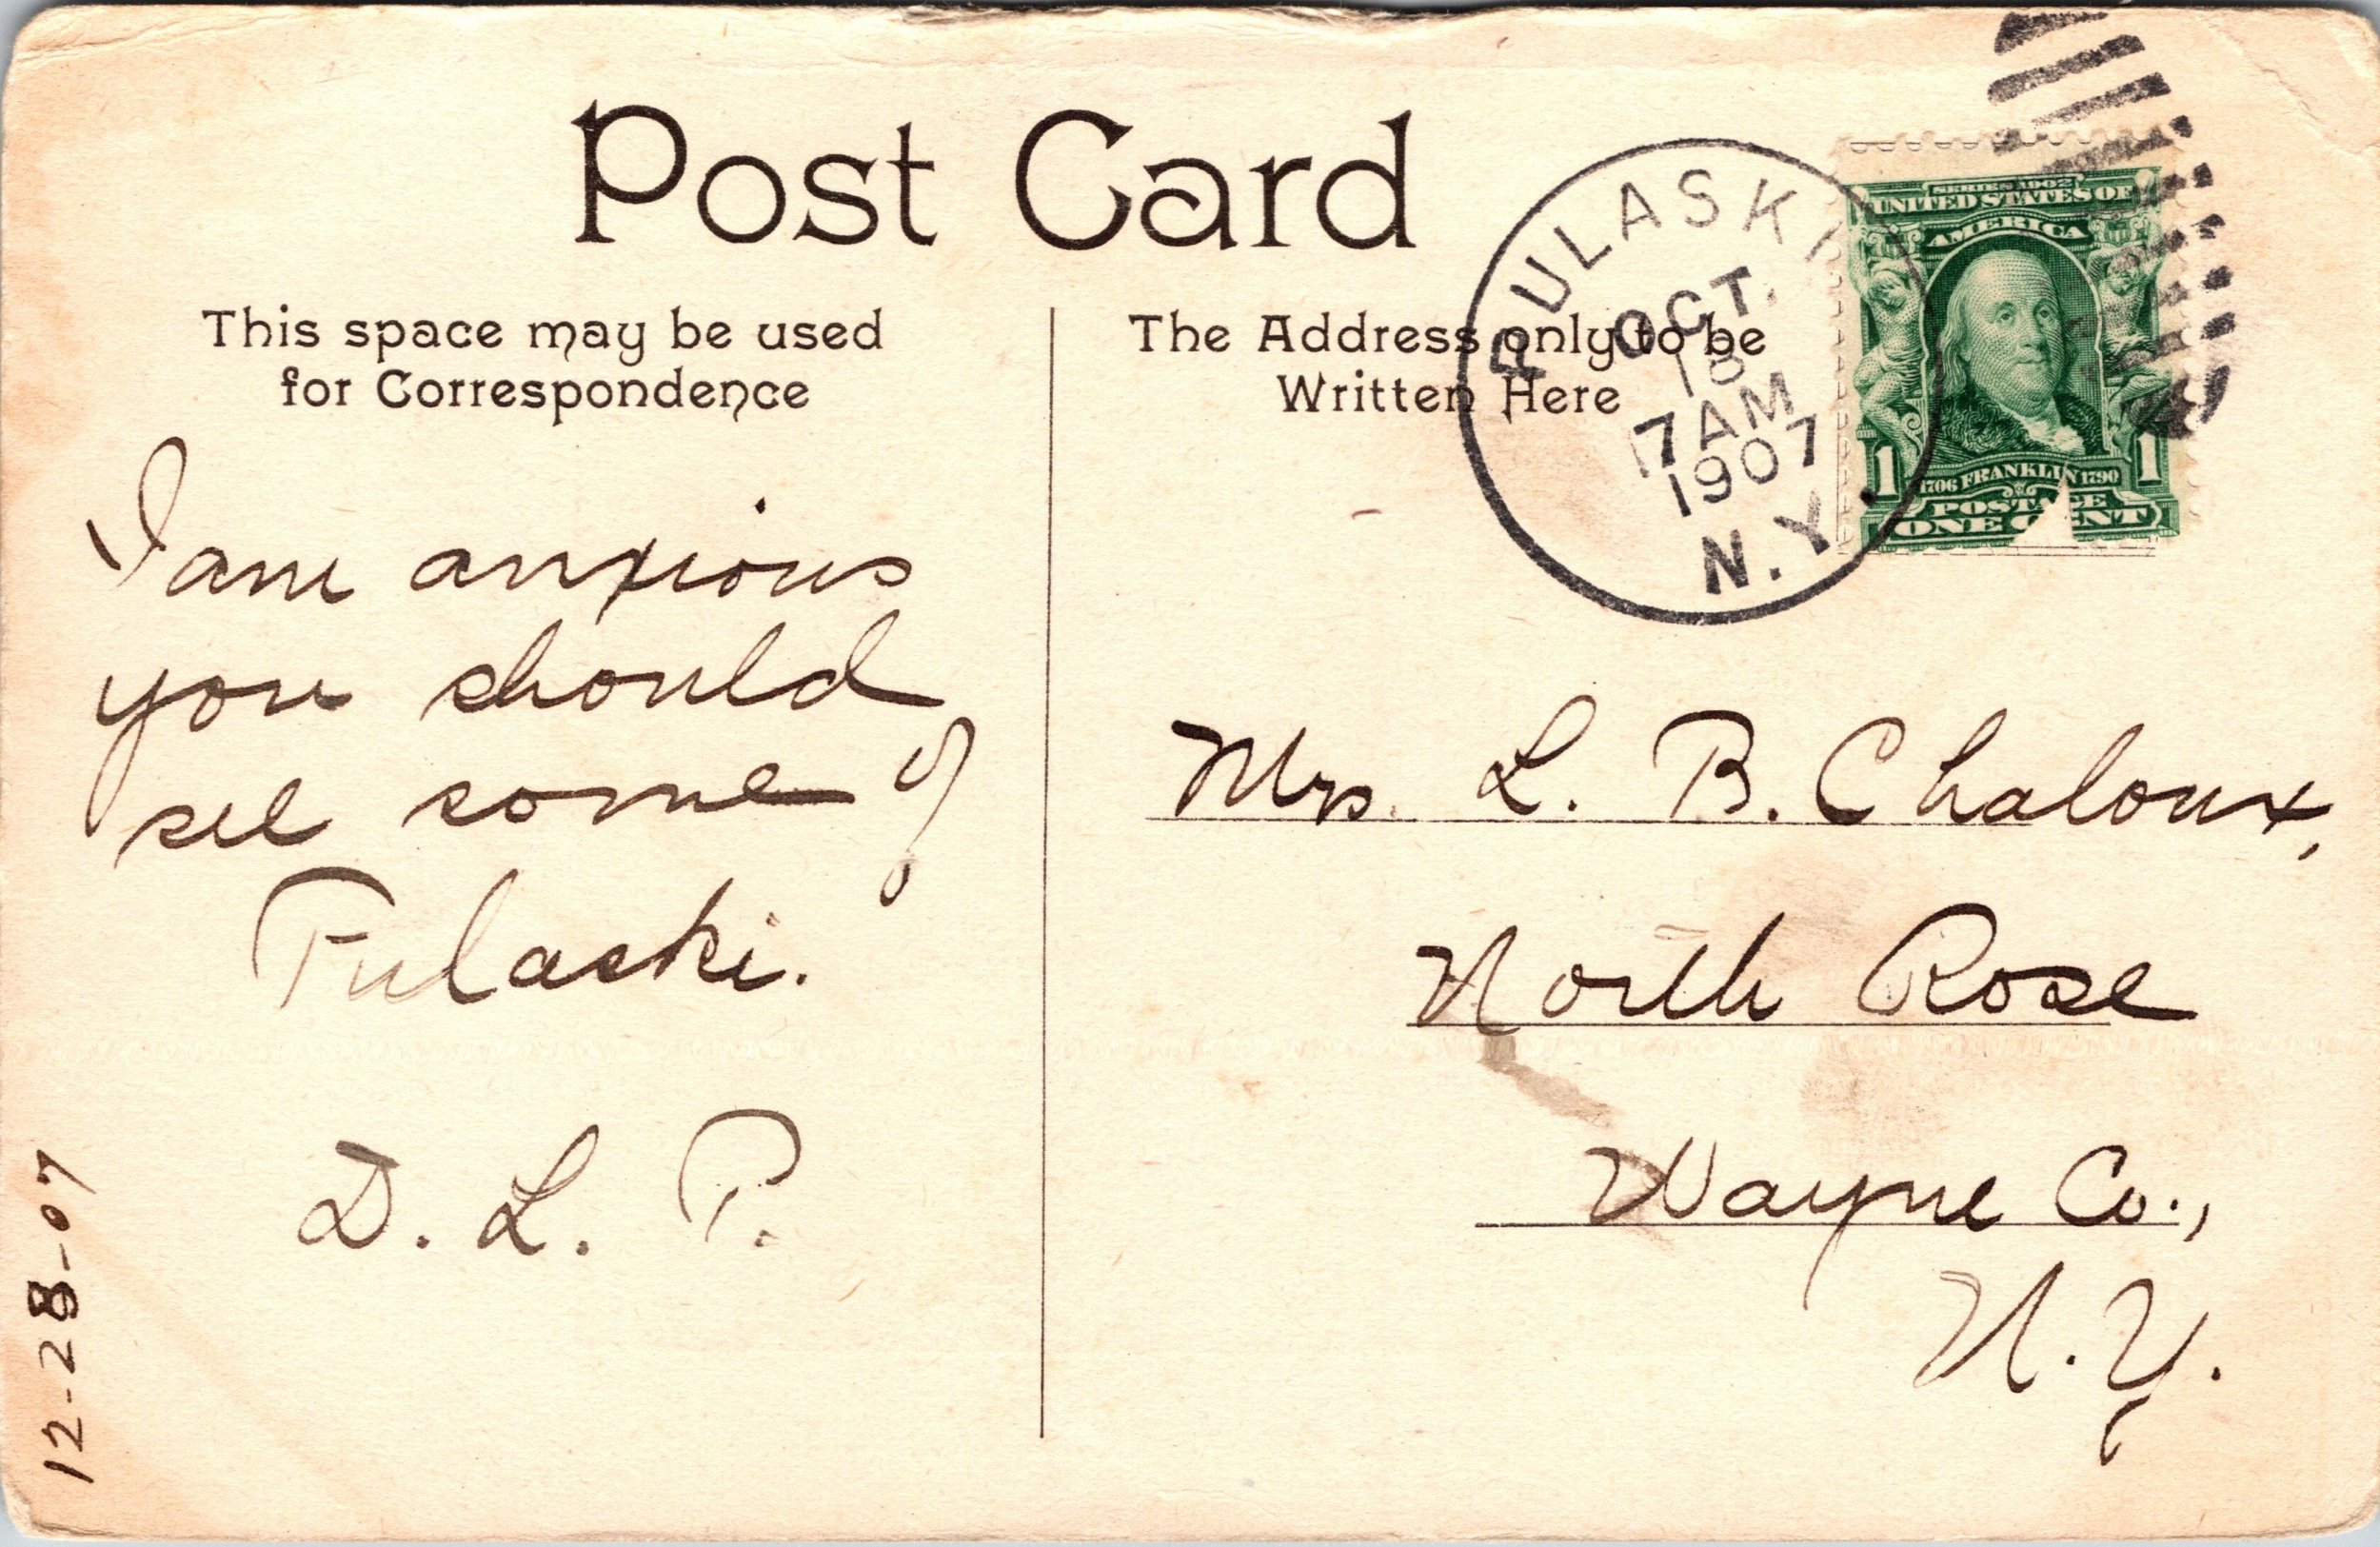 Post Card
This space may be used
for Correspondence
The Address only to be
Written Here
PULASKI
OCT.
7 AM
1907
N.Y.
SERIES 1902
UNITED STATES OF
AMERICA
1 1
1706 FRANKLIN 1790
POSTAGE
ONE CENT
I am anxious
you should
see some of
Pulaski.
D. L. P.
12-28-07
Mrs. L. B. Chaloux,
North Rose
Wayne Co.,
N.Y.